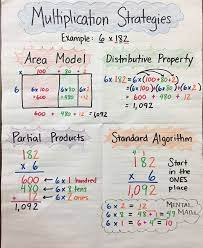 Multiplication Strategies
Example: 6 x 182
Area Model
x 100 + 80 + 2
6 6x100 6x80 6x2
= 600 = 480 = 12
600 + 480 + 12 = 1,092
Distributive Property
6 x 182 = 6 x (100 + 80 + 2)
= (6x100)+(6x80)+(6x2)
= 600 + 480 + 12
= 1,092
Partial Products
182
x 6
600 ← 6 x 1 hundred
480 ← 6 x 8 tens
+ 12 ← 6 x 2 ones
1,092
Standard Algorithm
182
x 6
1,092
Start
in the
ONES
place
6 x 2 = 12
MENTAL
MATH
6 x 8 = 48 + 1 = 49
6 x 1 = 6 + 4 = 10